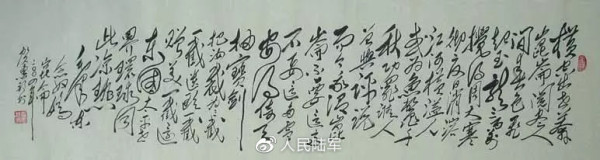 横空出世莽
崑崙阅尽人
间春色飞
起玉龙三百万
搅得周天寒
彻夏日消溶
江河横溢人
或为鱼鳖千
秋功罪谁人
曾与评说
而今我谓崑
崙不要这高
不要这多雪
安得倚天
抽宝剑
把汝裁为三截
一截遗欧
一截赠美一截还
东国太平世
界环球同
此凉热
毛泽东
念奴娇
昆仑
@人民陆军